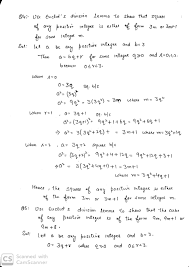 Q4: Use Euclid's division lemma to show that square
of any positive integer is either of form 3m or 3m+1
for some integer m.
Sol: Let a be any positive integer and b=3
Then a = 3q+r for some integer q≥0 and r=0,1,2
because 0≤r<3.
when r=0
a = 3q
a² = (3q)²
a² = 9q² = 3(3q²) = 3m where m=3q²
when r=1, a = 3q+1
a² = (3q+1)² = 9q²+1+6q = 9q²+6q+1
a² = 3(3q²+2q)+1 = 3m+1 where m=3q²+2q
when r=2, a = 3q+2
a² = (3q+2)² = 9q²+12q+4
= 3m+1
Hence, the square of any positive integer is either
of the form 3m or 3m+1 for some integer m.
Q5: Use Euclid's division lemma to show that the cube
of any positive integer is of the form 9m, 9m+1
or 9m+8
Sol: Let a be any positive integer and b=3.
a = 3q+r where q≥0 and 0≤r<3
CS Scanned with
CamScanner